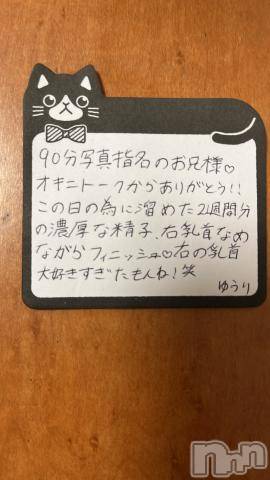 90分写真指名のお兄様♡
オキニトークからありがとう!!
この日の為に溜めた2週間分
の濃厚な精子、右乳首なめ
ながらフィニッシュ♡右の乳首
大好きすぎたもんね!笑
ゆうり